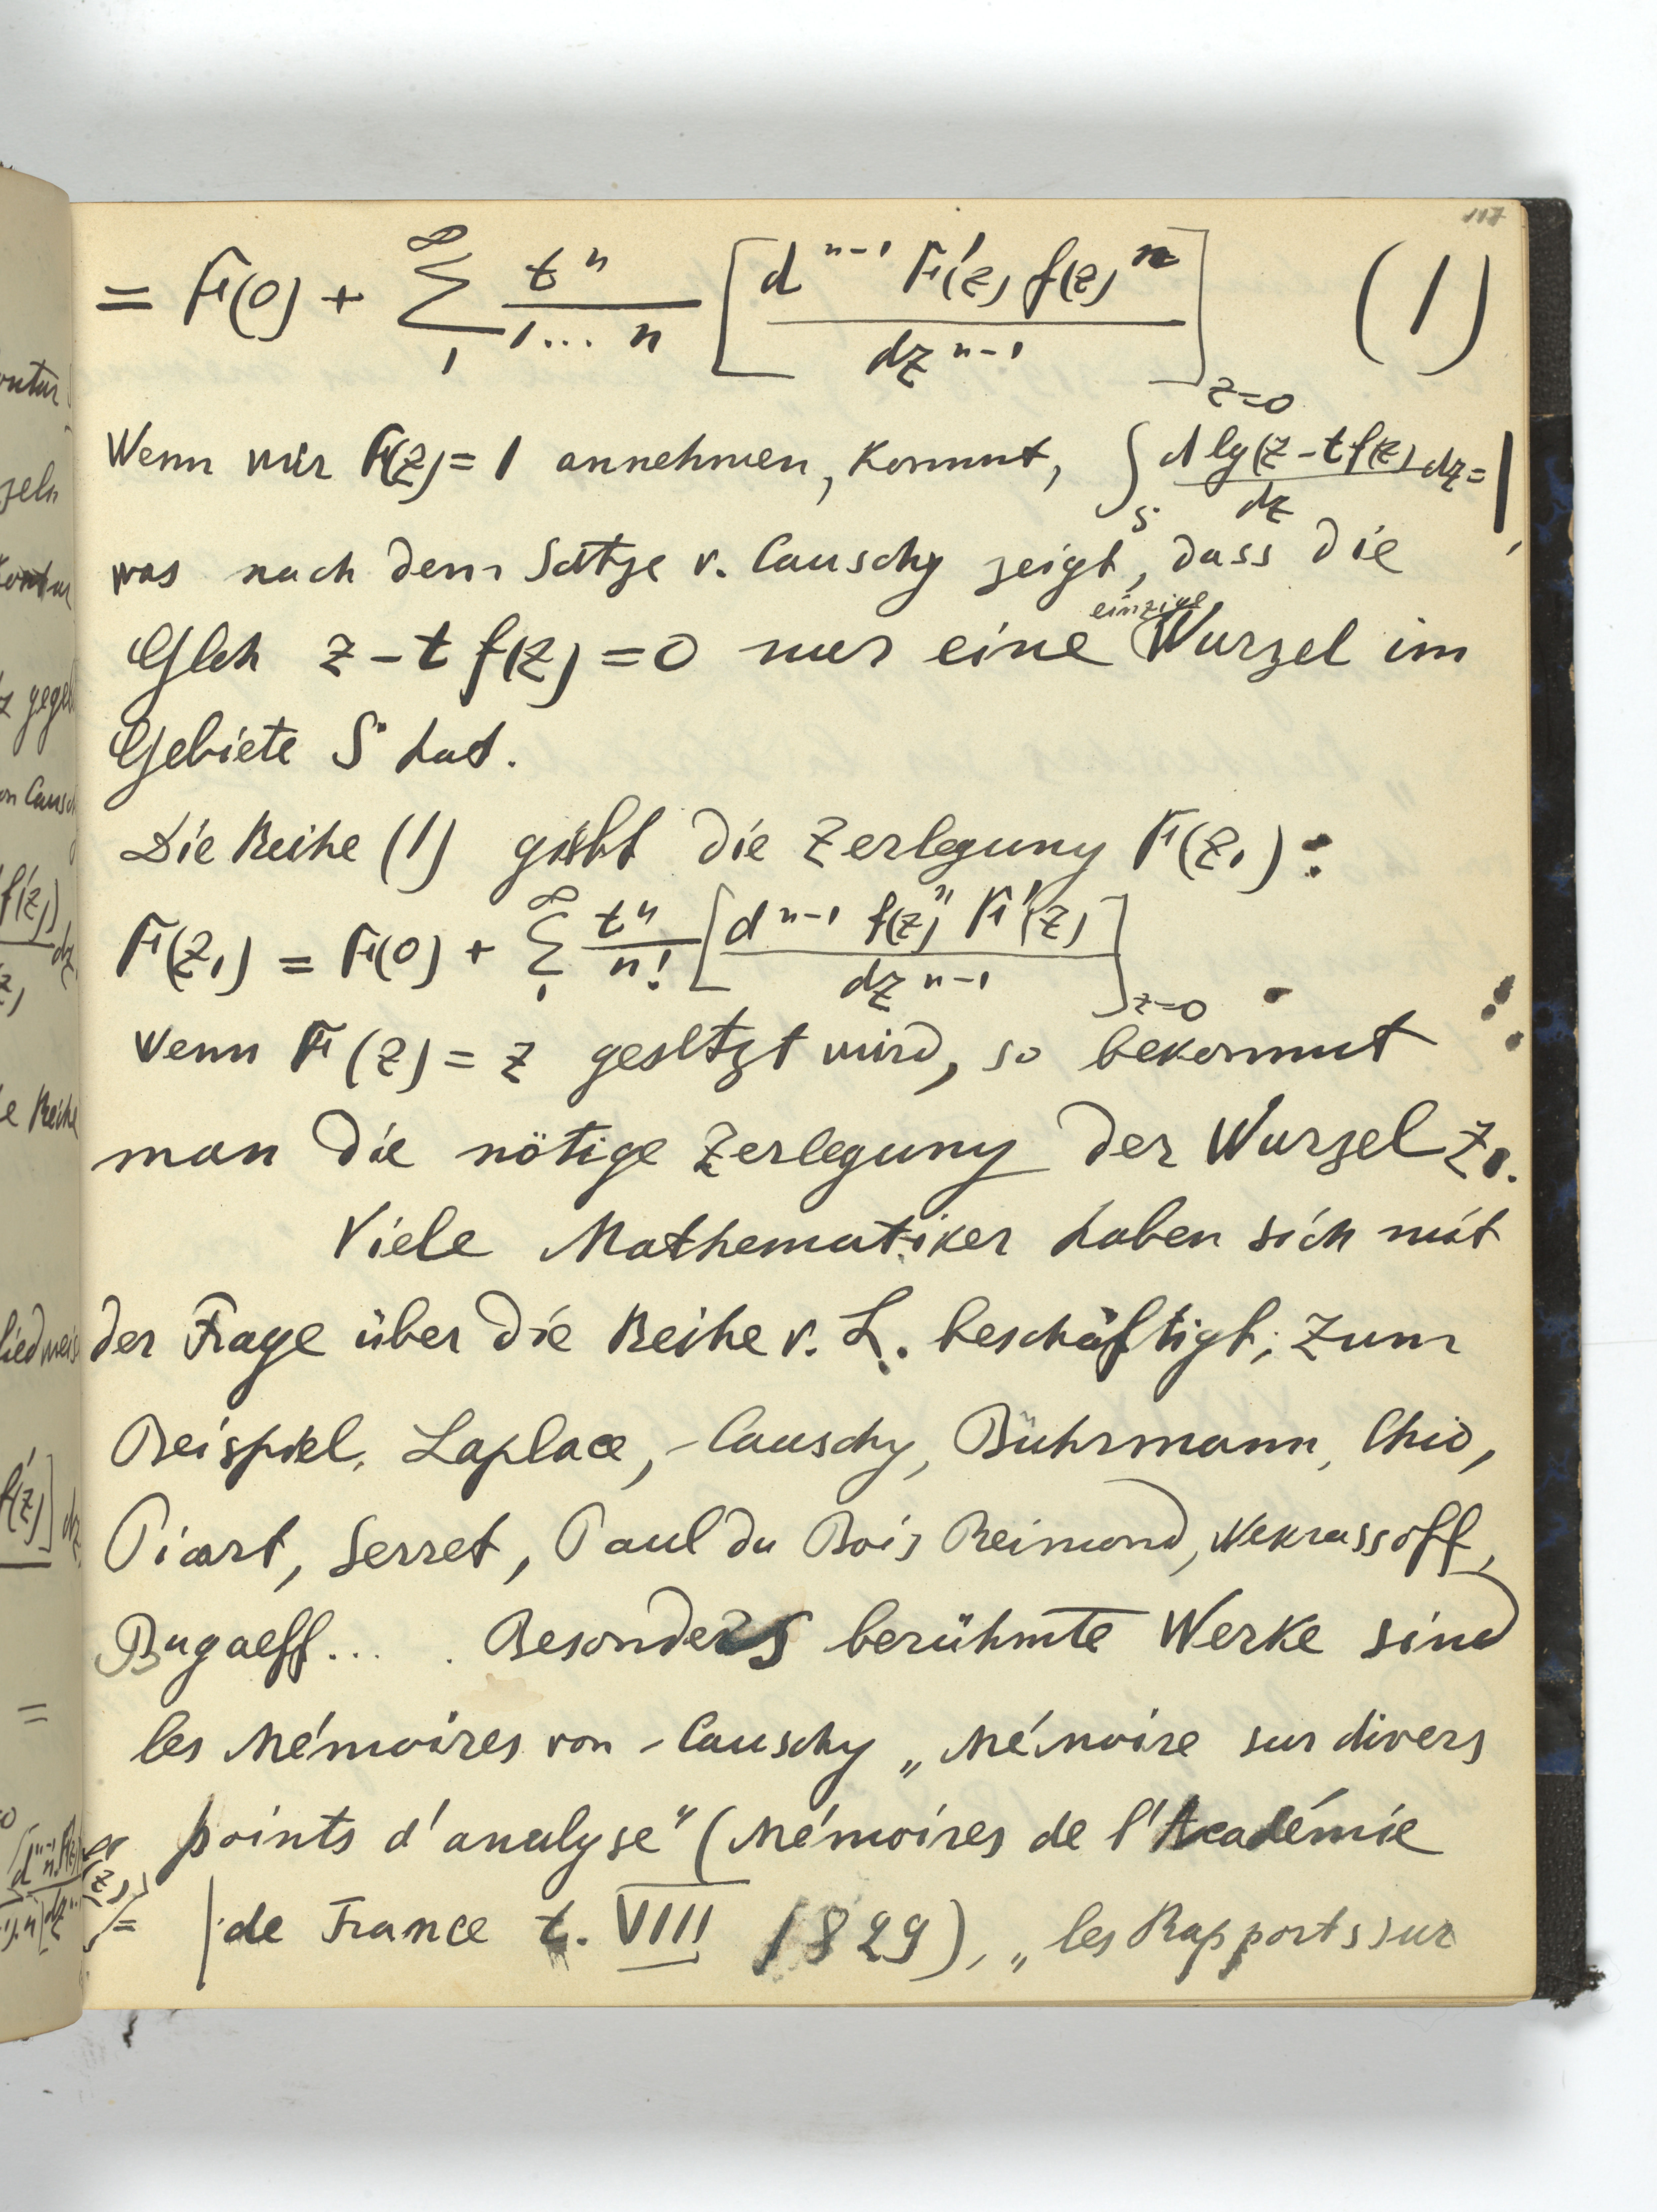 117
= F(0) + ∞ Σ 1 t^n / 1... n [ d^{n-1} F'(z) f(z)^n / dz^{n-1} ]_{z=0} (1)
Wenn wir F(z) = 1 annehmen, kommt, ∫_S d lg(z - t f(z)) / dz dz = 1,
was nach dem Satze v. Causchy zeigt, dass die
einzige
Glch z - t f(z) = 0 nur eine Wurzel im
Gebiete S hat.
Die Reihe (1) gibt die Zerlegung F(z₁):
F(z₁) = F(0) + ∞ Σ 1 t^n / n! [ d^{n-1} f(z)^n F'(z) / dz^{n-1} ]_{z=0}
Wenn F(z) = z gesetzt wird, so bekommt
man die nötige Zerlegung der Wurzel z₁.
Viele Mathematiker haben sich mit
der Frage über die Reihe v. L. beschäftigt; zum
Beispiel, Laplace, Causchy, Bührmann, Chio,
Piart, Serret, Paul du Bois Reimond, Nekrassoff,
Bugaeff... . Besonders berühmte Werke sind
les Mémoires von Causchy „Mémoire sur divers
points d'analyse" (Mémoires de l'Académie
de France t. VIII 1829), „les Rapports sur